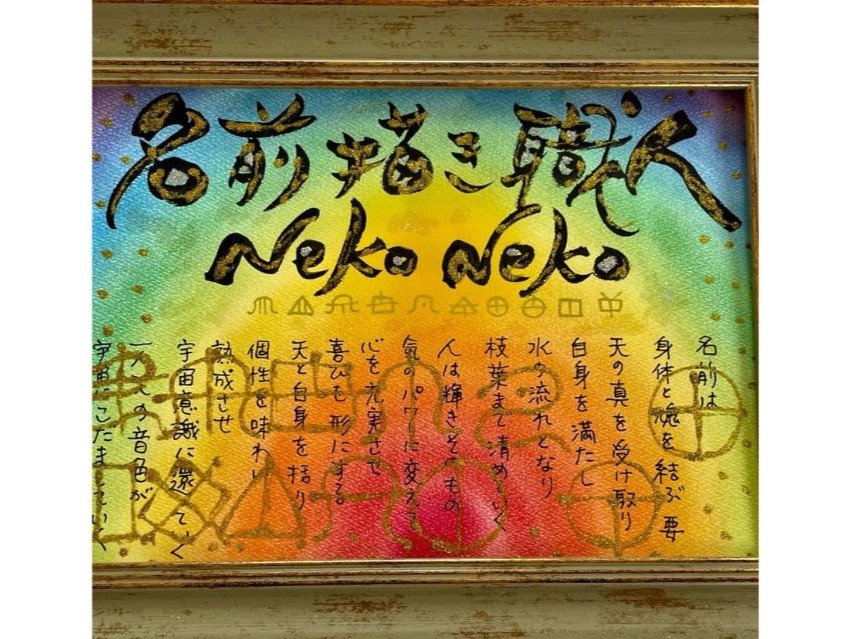 名前描き職人
Neko Neko
名前は
身体と魂を結ぶ要
天の真を受け取り
自身を満たし
水の流れとなり
枝葉まで清めていく
人は輝きそのもの
氣のパワーに変えて
心を充実させ
喜びを形にする
天と自身を括り
個性を味わい
熟成させ
宇宙意識に還っていく
一人一人の音色が
宇宙にこだましていく